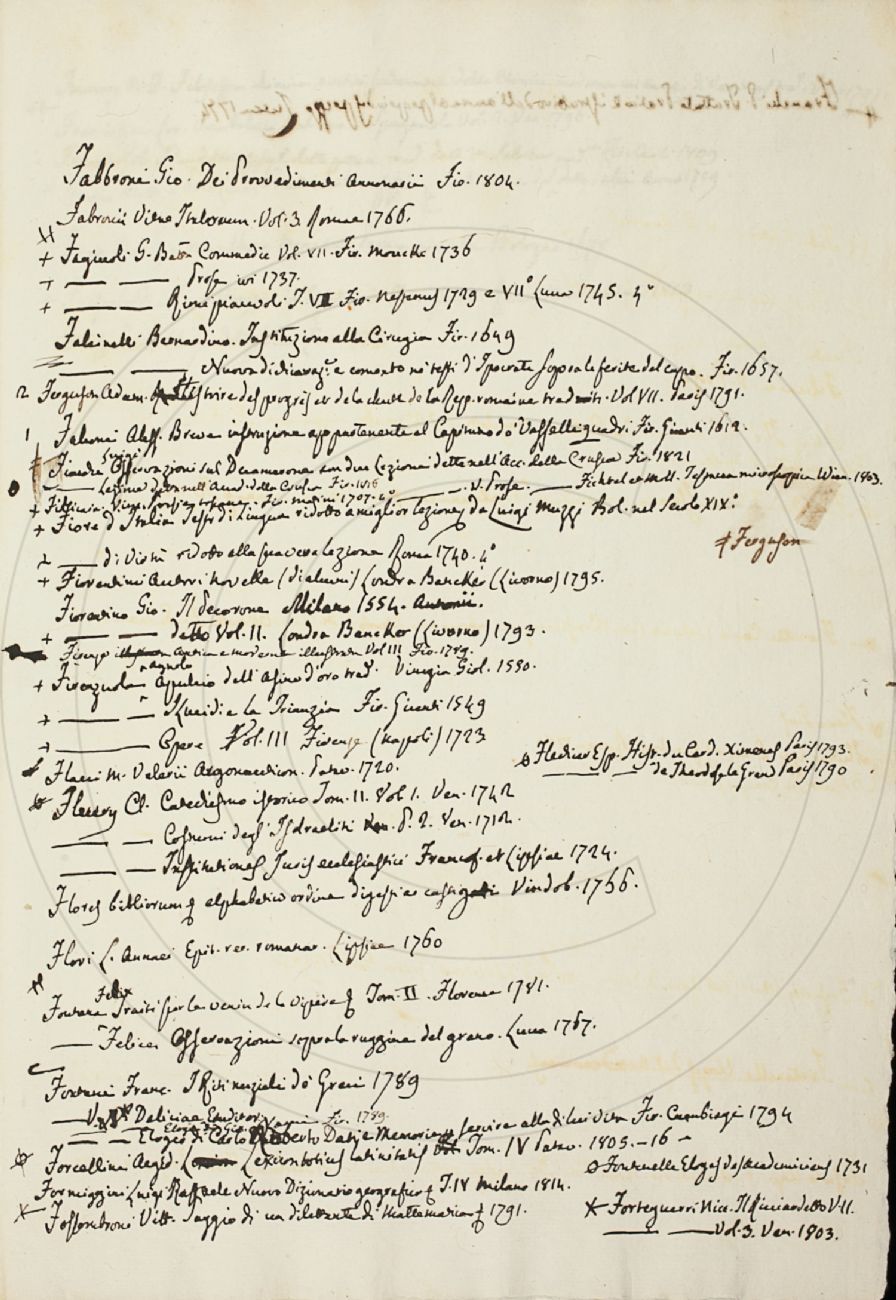 Fabbroni Gio. Dei Provvedimenti annonarii Fir. 1804.
Fabronii Vitae Italorum. Vol. 3. Romae 1766.
+ Fagiuoli G. Batta Commedie Vol. VII. Fir. Moucke 1736
+ — — Prose ivi 1737.
+ — — Rime piacevoli T. VII Fir. Nestenus 1729 e VII° Lucca 1745. 4°
Falcinelli Bernardino. Instituzione alla Cirugia Fir. 1649
— — Nuova dichiaraz.e e comento ne' testi d'Ipocrate sopra le ferite del capo. Fir. 1657.
2 Ferguson Adam. Histoire des progrès et de la chute de la Rep. romaine trad. Vol VII. Paris 1791.
1 Falconi Aless. Breve instruzione appartenente al Capitano de' Vasselli quadri Fir. Giunti 1612.
Fiacchi Luigi Osservazioni sul Decamerone con due Lezioni dette nell'Acc. della Crusca Fir. 1821
— Lezione detta nell'Accad. della Crusca Fir. 1816 — — v. Prose. — Fichtel et Moll. Testacea microscopica Wien. 1803.
+ Filicaia Vinc. Poesie toscane. Fir. Matini 1707. 4°
+ Fiore d'Italia Testo di Lingua ridotto a miglior lezione da Luigi Muzzi Bol. nel Secolo XIX.°
+ Ferguson
2 — di Virtù ridotto alla sua vera lezione Roma 1740. 4°
+ Fiorentini Autori novelle (di alcuni) Londra Bancker (Livorno) 1795.
Fiorentino Gio. Il Pecorone Milano 1554. Antonii.
+ — — detto Vol. II. Londra Bancker (Livorno) 1793.
Firenze antica e moderna illustrata Vol III Fir. 1789.
+ Firenzuola agnolo Apuleio dell'Asino d'oro trad. Vinegia Giol. 1550.
+ — — I Lucidi e la Trinuzia Fir. Giunti 1549
+ — Opere Vol. III Firenze (Napoli) 1723
Flacci M. Valerii Argonauticon. Patav. 1720.
Flechier Esp. Hist. du Card. Ximenes Paris 1793.
— — de Theodose le Grand Paris 1790
Fleury Cl. Catechismo istorico Tom. II. Vol 1. Ven. 1742
— — Costumi degl'Isdraeliti P. 2. Ven. 1712.
— — Institutiones Juris ecclesiastici Francof. et Lipsiae 1724.
Flores bibliorum alphabetico ordine digesti ac castigati Vindob. 1756.
Flori L. Annaei Epit. rer. romanar. Lipsiae 1760
Fontana Felix Traité sur le venin de la vipere Tom. II. Florence 1781.
— Felice Osservazioni sopra la ruggine del grano. Lucca 1767.
Fontani Franc. I Riti nuziali de' Greci 1789
— V. Deliciae Eruditor.
— — Elogio di Carlo Roberto Dati e Memorie per servire alla di lui Vita Fir. Cambiagi 1794
Forcellini Aegid. Lexicon totius latinitatis Tom. IV Patav. 1805.–16 –
Fontenelle Eloges des academiciens 1731
Formiggini Luigi Raffaele Nuovo Dizionario geografico T. IV Milano 1814.
Fossombroni Vitt. Saggio di un dilettante di matematica 1791.
Forteguerri Nicc. Il Ricciardetto V. II.
— — Vol. 3. Ven. 1803.